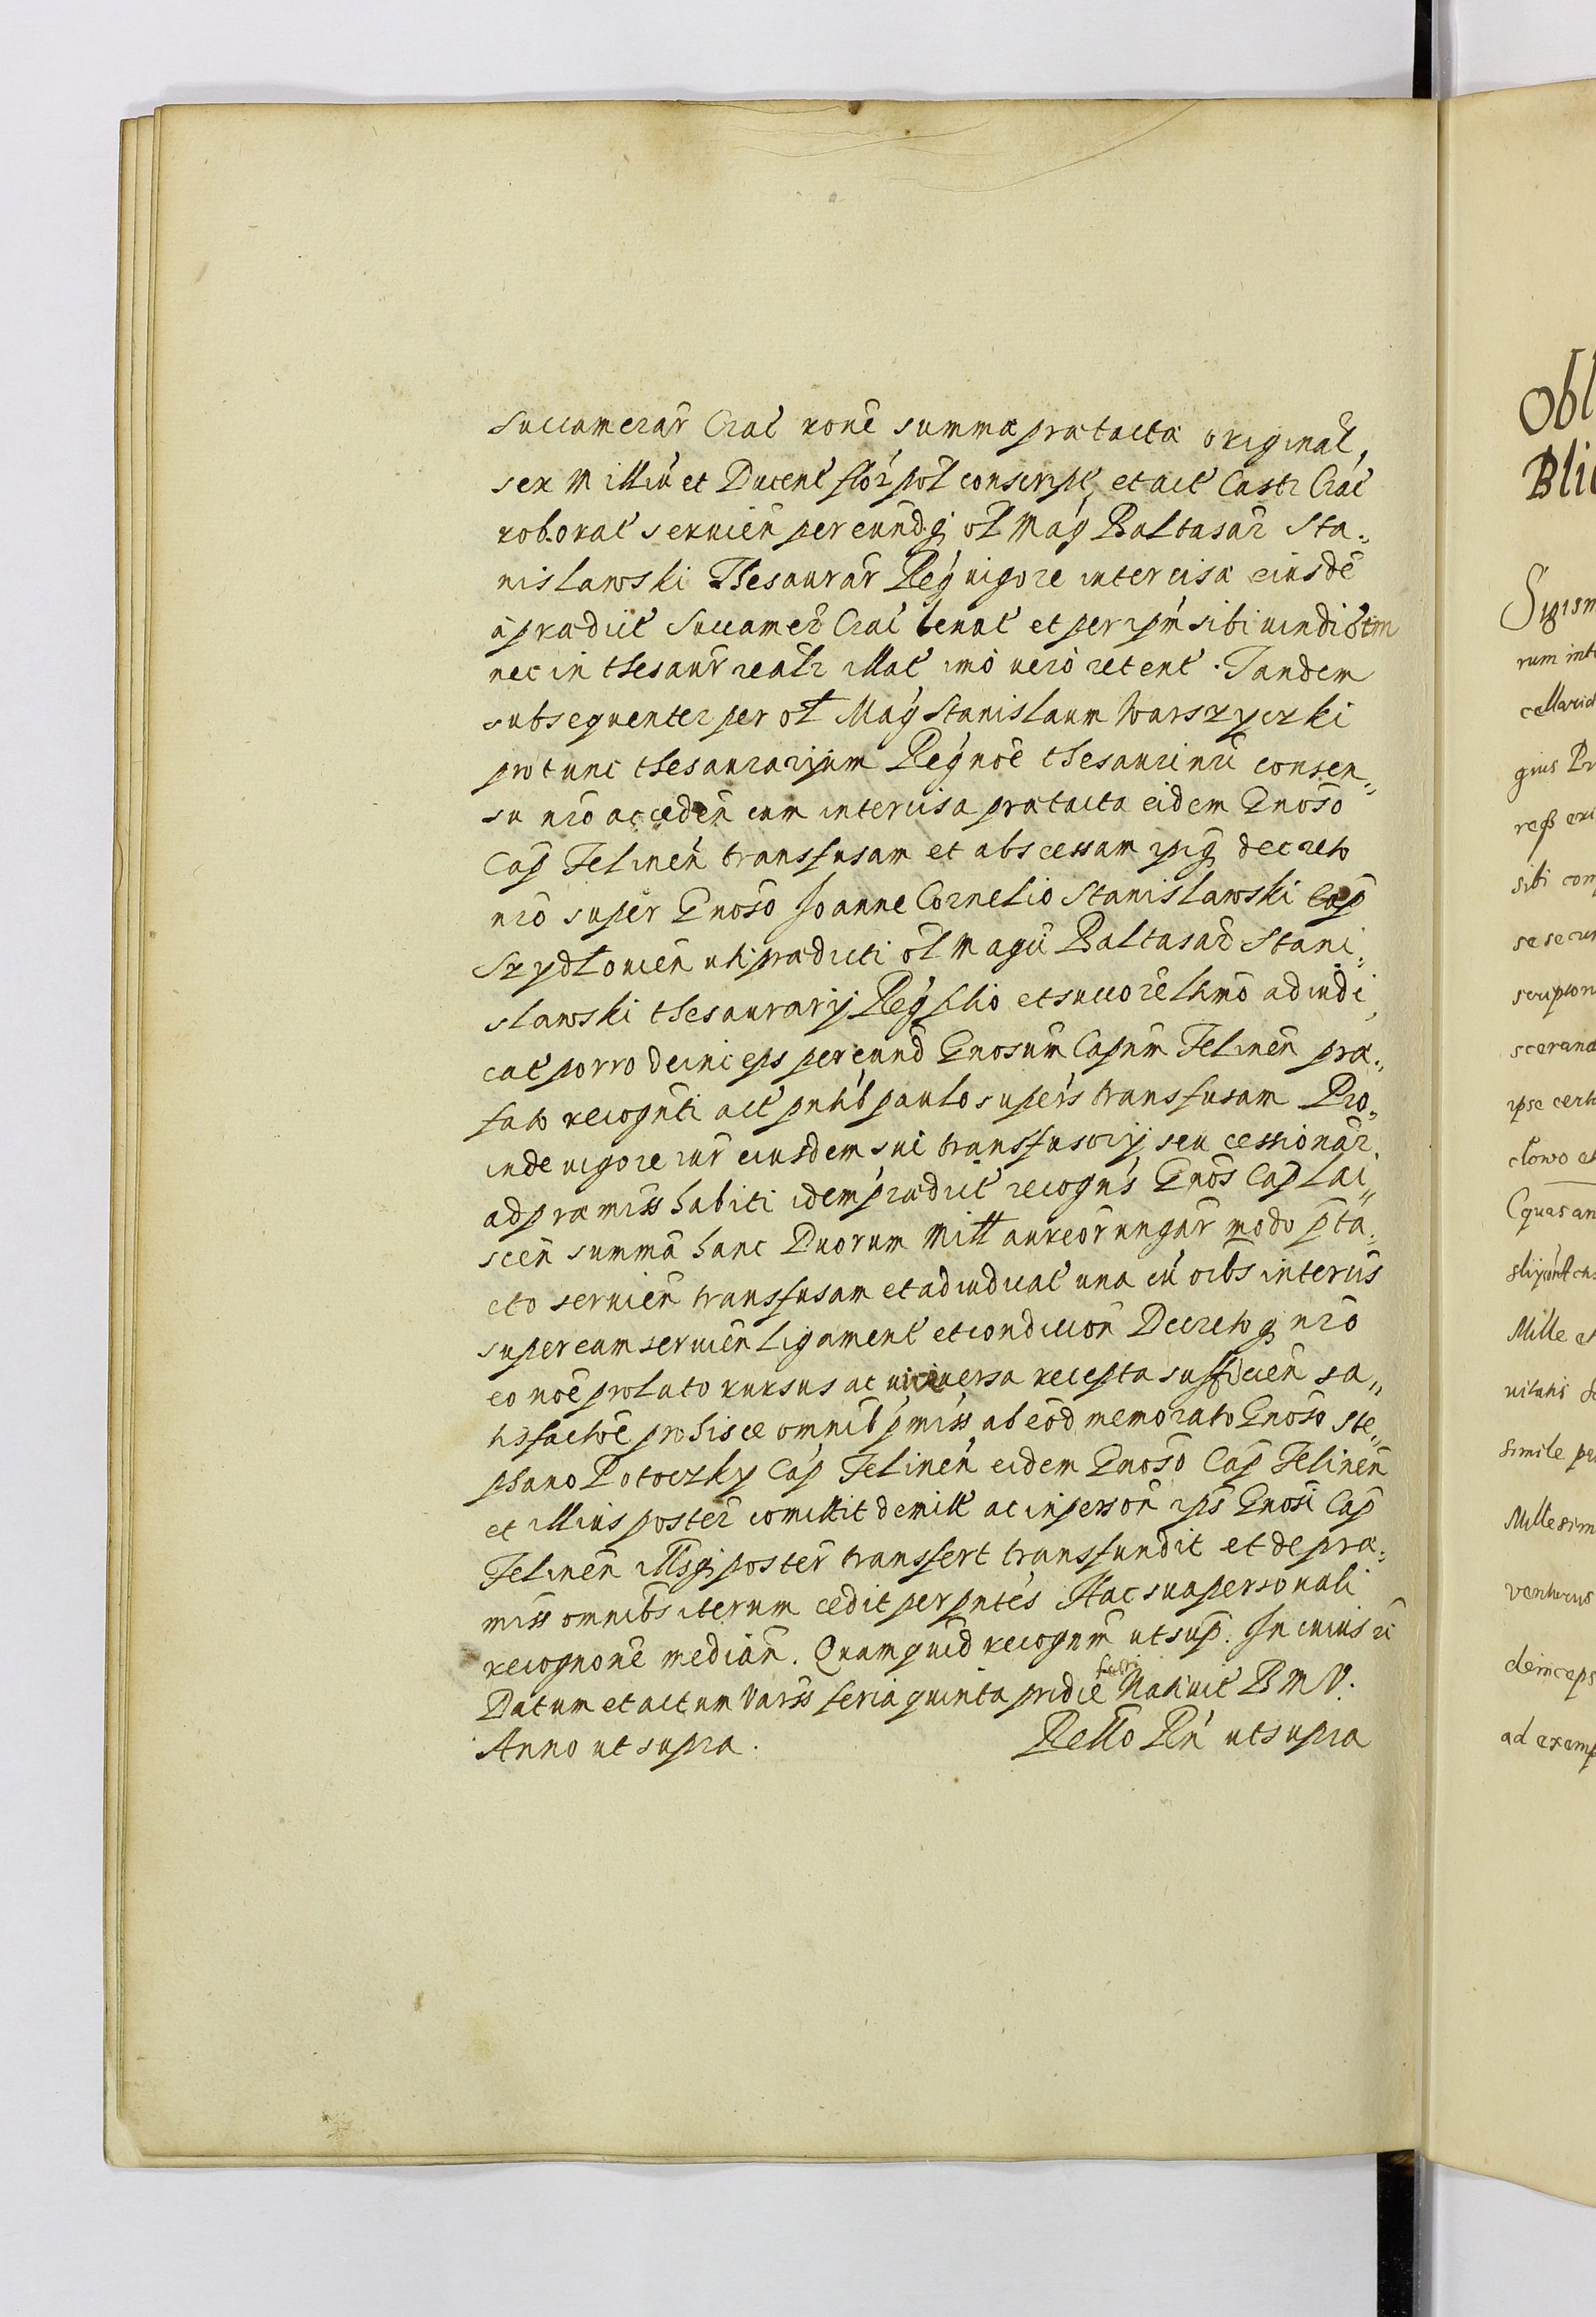 Succamerar̄ Crac̄ rōne summæ prætactæ originał,
sex Milliū et Ducent̄ flor̄ pol̄ conscript̄, et act̄ Castr̄ Crac̄
roborat̄ servien̄ per eundq̨ ol̄ Maḡ Baltasar̄ Sta„
nislawski Thesaurar̄ Reḡ vigore intercisæ eiusdē
à prædict̄ Succamer̄ Crac̄ levat̄ et per ipm̄ sibi vindict̄m
nec in thesaur̄ reatr̄ illat̄ imò verò retent̄. Tandem
subsequenter per ol̄ Maḡ Stanislaum Warszyczki
pro tunc thesaurarium Reḡ noē thesauri nr̄i consen„
su nr̄o acceden̄ cum intercisa prætacta eidem Gnōso
Cap̄ Felinen̄ transfusam et abscessam ipiq̨ decreto
nr̄o super Gnōso Joanne Cornelio Stanislawski Cap̄
Szydłovien̄ uti prædicti ol̄ Magci Baltasar̄ Stani„
slawski thesaurarij Reḡ filio et succōre ltimō adiudi„
cat̄ porro deinceps per eund̄ Gnosum̄ Capnm̄ Felinen̄ præ„
fato recogn̄ti act̄ pntib̄ paulo superī̄s transfusam Pro„
inde vigore iur̄ eiusdem sui transfusorij seu cessionar̄
ad præmiss̄ habiti idem prædict̄ recogn̄s Gnōs Cap̄ Lai„
scen̄ summā hanc Duorum Mill̄ aureor̄ ungar̄ modo p̄ta„
cto servien̄ transfusam et adiudicat̄ una cū oībs intercīs
super eam servien̄ ligament̄ et condicion̄ Decretoq̨ nr̄o
eo noē prolato rursus ac viceversa recepta sufficien̄ sa„
tisfactōe pro hisce omnib̄ p̄miss̄, ab eod̄ memorato Gnōso Ste„
phano Potoczky Cap̄ Felinen̄ eidem Gnōso Cap̄ Felinen̄
et illius poster̄ comittit demitt̄ ac in person̄ ips̄ Gnōsi Cap̄
Felinen̄ illīsq̨ poster̄ transfert transfundit et de præ„
miss̄ omnibs iterum cedit per pntēs Hac sua personali
recognōne median̄. Quamquid̄ recognm̄ ut sup̄. In cuius r̄i
Datum et actum Vars̄ feria quinta pridiē festi Nativit̄ B M V.
Anno ut supra. Rell̄o Rn̄ ut supra
Obl
Bli
Sigism
rum int
cellaria
gius
sibi com
se secur
scription
scerand
ipse cert
clowo et
quas an
Mille et
vitatis
simile pe
Millesim
venturus
deinceps
ad exemp